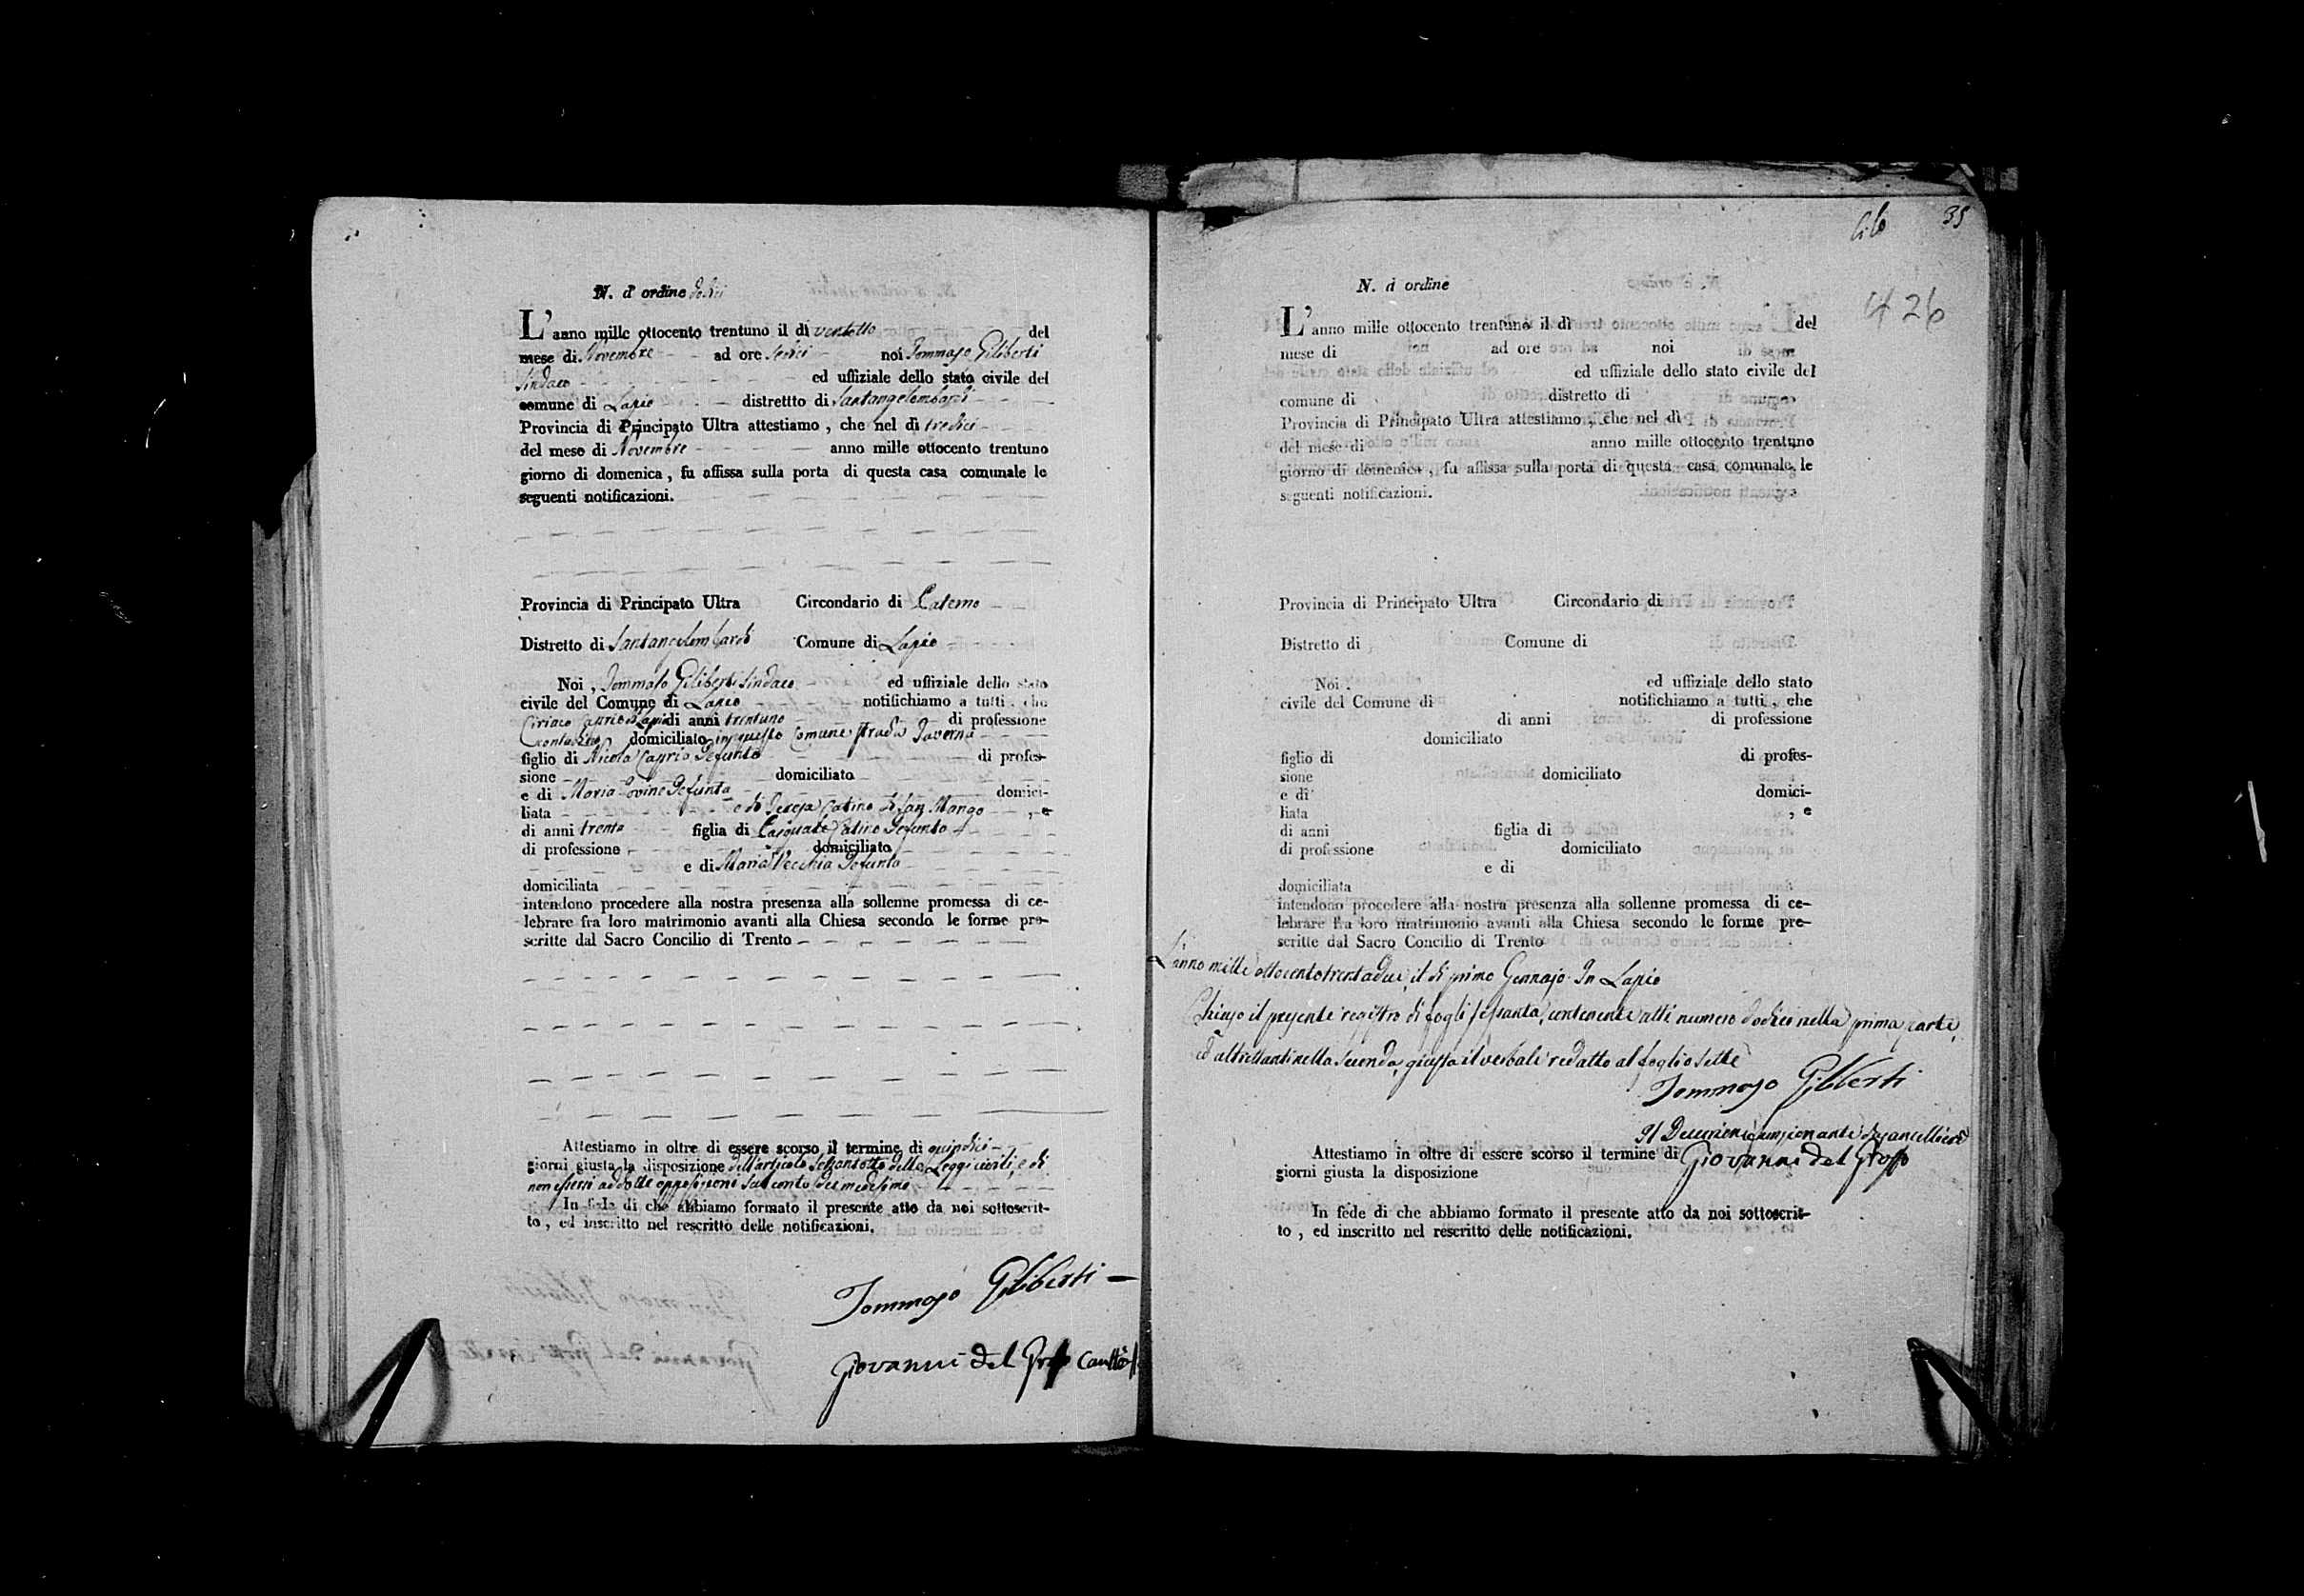 N. d' ordine dodici
L' anno mille ottocento trentuno il dì ventotto del
mese di Novembre ad ore sedici noi Tommaso Giliberti
Sindaco ed uffiziale dello stato civile del
comune di Lapio distrettto di Santangelombardi
Provincia di Principato Ultra attestiamo , che nel dì tredici
del mese di Novembre anno mille ottocento trentuno
giorno di domenica , fu affissa sulla porta di questa casa comunale le
seguenti notificazioni.
Provincia di Principato Ultra Circondario di Paterno
Distretto di Santangelombardi Comune di Lapio
Noi , Tommaso Giliberti Sindaco ed uffiziale dello stato
civile del Comune di Lapio notifichiamo a tutti , che
Ciriaco Caprio di Lapio di anni trentuno di professione
domiciliato in questo Comune strada Taverna
figlio di Nicola Caprio Defunto di profes-
sione domiciliato
e di Maria Iovine Defunta domici-
liata e di Teresa Catino di San Mango , e
di anni trenta figlia di Pasquale Catino Defunto
di professione domiciliato
e di Maria Vecchia Defunta
domiciliata
intendono procedere alla nostra presenza alla sollenne promessa di ce-
lebrare fra loro matrimonio avanti alla Chiesa secondo le forme pre-
scritte dal Sacro Concilio di Trento
Attestiamo in oltre di essere scorso il termine di quindici
giorni giusta la disposizione dell'articolo Sessantotto delle Leggi civili, e di
non essersi addotte opposizioni sul conto dei medesimi
In fede di che abbiamo formato il presente atto da noi sottoscrit-
to , ed inscritto nel rescritto delle notificazioni.
Tommaso Giliberti
Giovanni del Grosso
35
426
N. d ordine
L' anno mille ottocento trentuno il dì del
mese di ad ore noi
ed uffiziale dello stato civile del
comune di distretto di
Provincia di Principato Ultra attestiamo , che nel dì
del mese di anno mille ottocento trentuno
giorno di domenica , fu affissa sulla porta di questa casa comunale le
seguenti notificazioni.
Provincia di Principato Ultra Circondario di
Distretto di Comune di
Noi , ed uffiziale dello stato
civile del Comune di notifichiamo a tutti , che
di anni di professione
domiciliato
figlio di di profes-
sione domiciliato
e di domici-
liata , e
di anni figlia di
di professione domiciliato
e di
domiciliata
intendono procedere alla nostra presenza alla sollenne promessa di ce-
lebrare fra loro matrimonio avanti alla Chiesa secondo le forme pre-
scritte dal Sacro Concilio di Trento
L'anno mille ottocentotrentadue, il dì primo Gennajo In Lapio
Chiuso il presente registro di fogli sessanta, contenente atti numero dodici nella prima parte,
ed altrettanti nella seconda, giusta il verbale redatto al foglio sette
Tommaso Giliberti
Il Decurione funzionante da Cancelliere
Attestiamo in oltre di essere scorso il termine di Giovanni del Grosso
giorni giusta la disposizione
In fede di che abbiamo formato il presente atto da noi sottoscrit-
to , ed inscritto nel rescritto delle notificazioni.